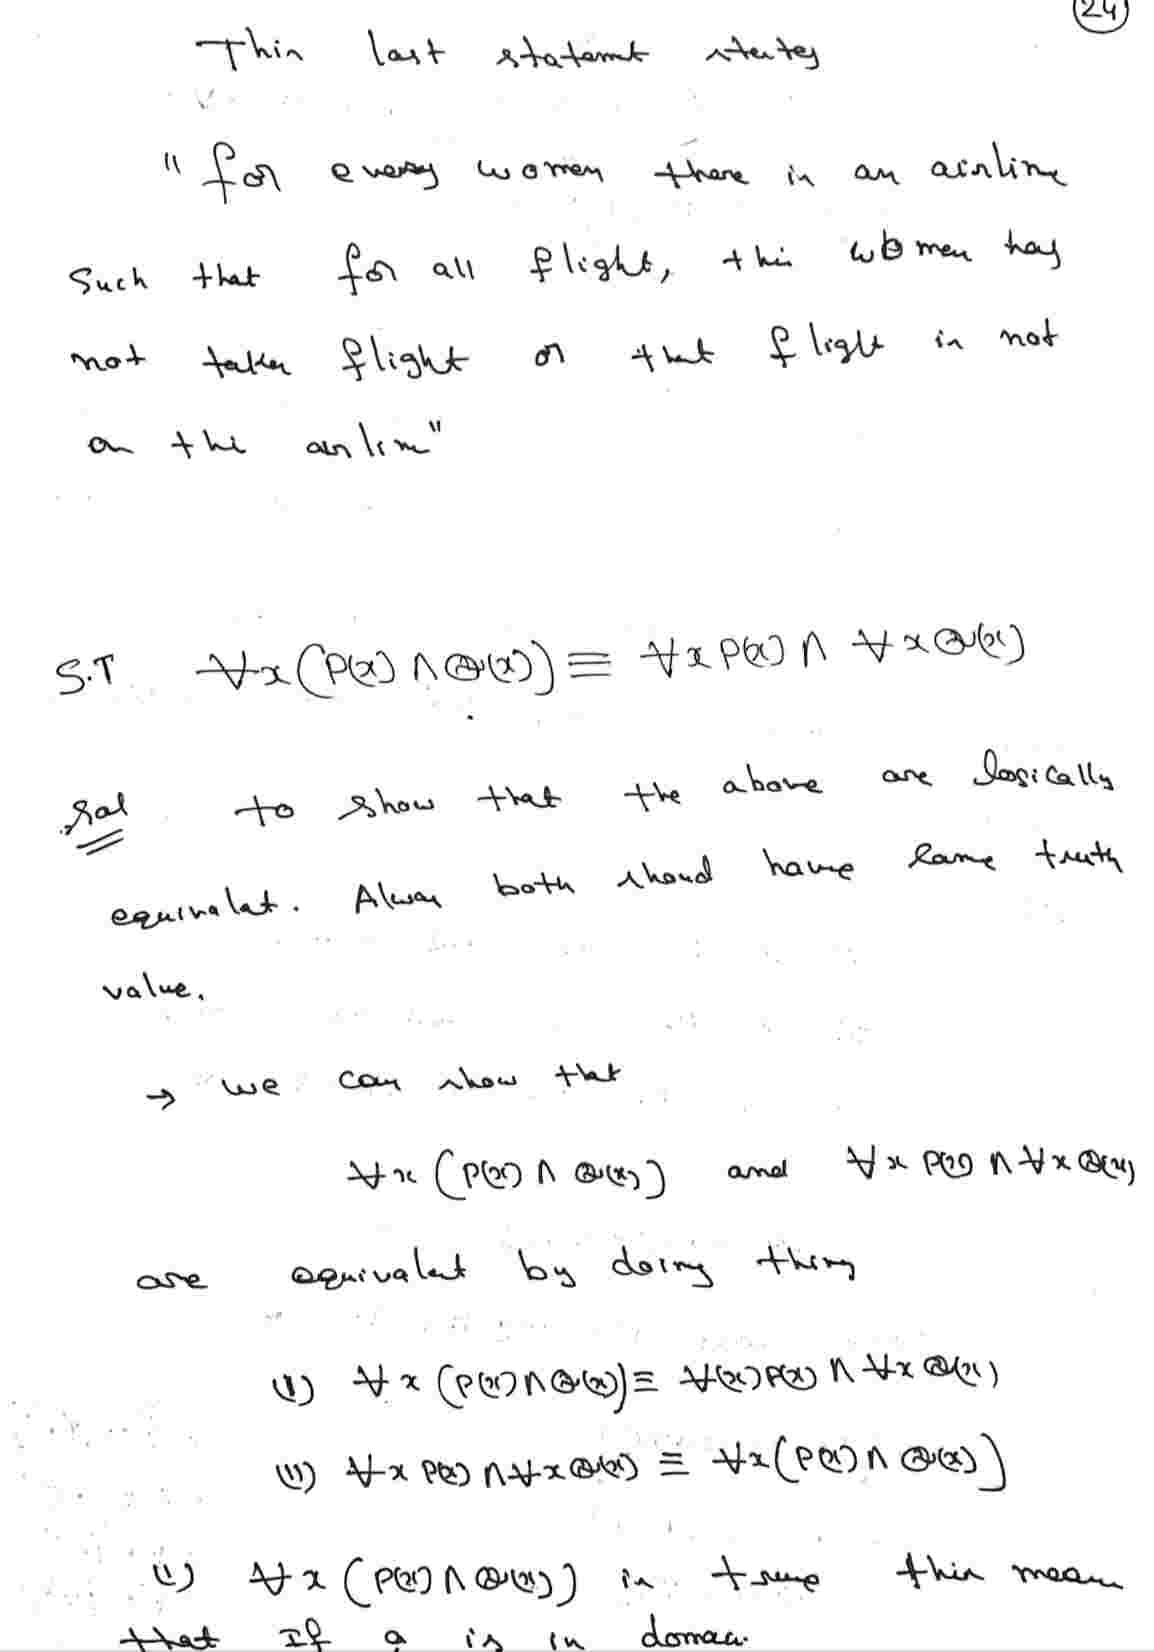 24
This last statemt states
"for every women there is an airline
Such that for all flight, this women has
not taken flight or that flight is not
on the airline"
S.T ∀x(P(x) ∧ Q(x)) ≡ ∀x P(x) ∧ ∀x Q(x)
Sol to show that the above are logically
equivalat. Alway both shoud have same truth
value.
→ we can show that
∀x (P(x) ∧ Q(x)) and ∀x P(x) ∧ ∀x Q(x)
are equivalent by doing thing
(i) ∀x (P(x) ∧ Q(x)) ≡ ∀(x) P(x) ∧ ∀x Q(x)
(ii) ∀x P(x) ∧ ∀x Q(x) ≡ ∀x (P(x) ∧ Q(x))
(i) ∀x (P(x) ∧ Q(x)) is true this mean
that If a is in domai